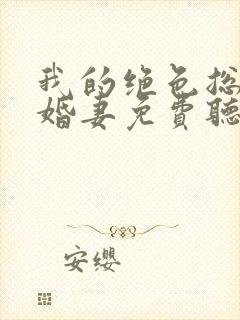 我的绝色总
婚妻免費聽
安缨